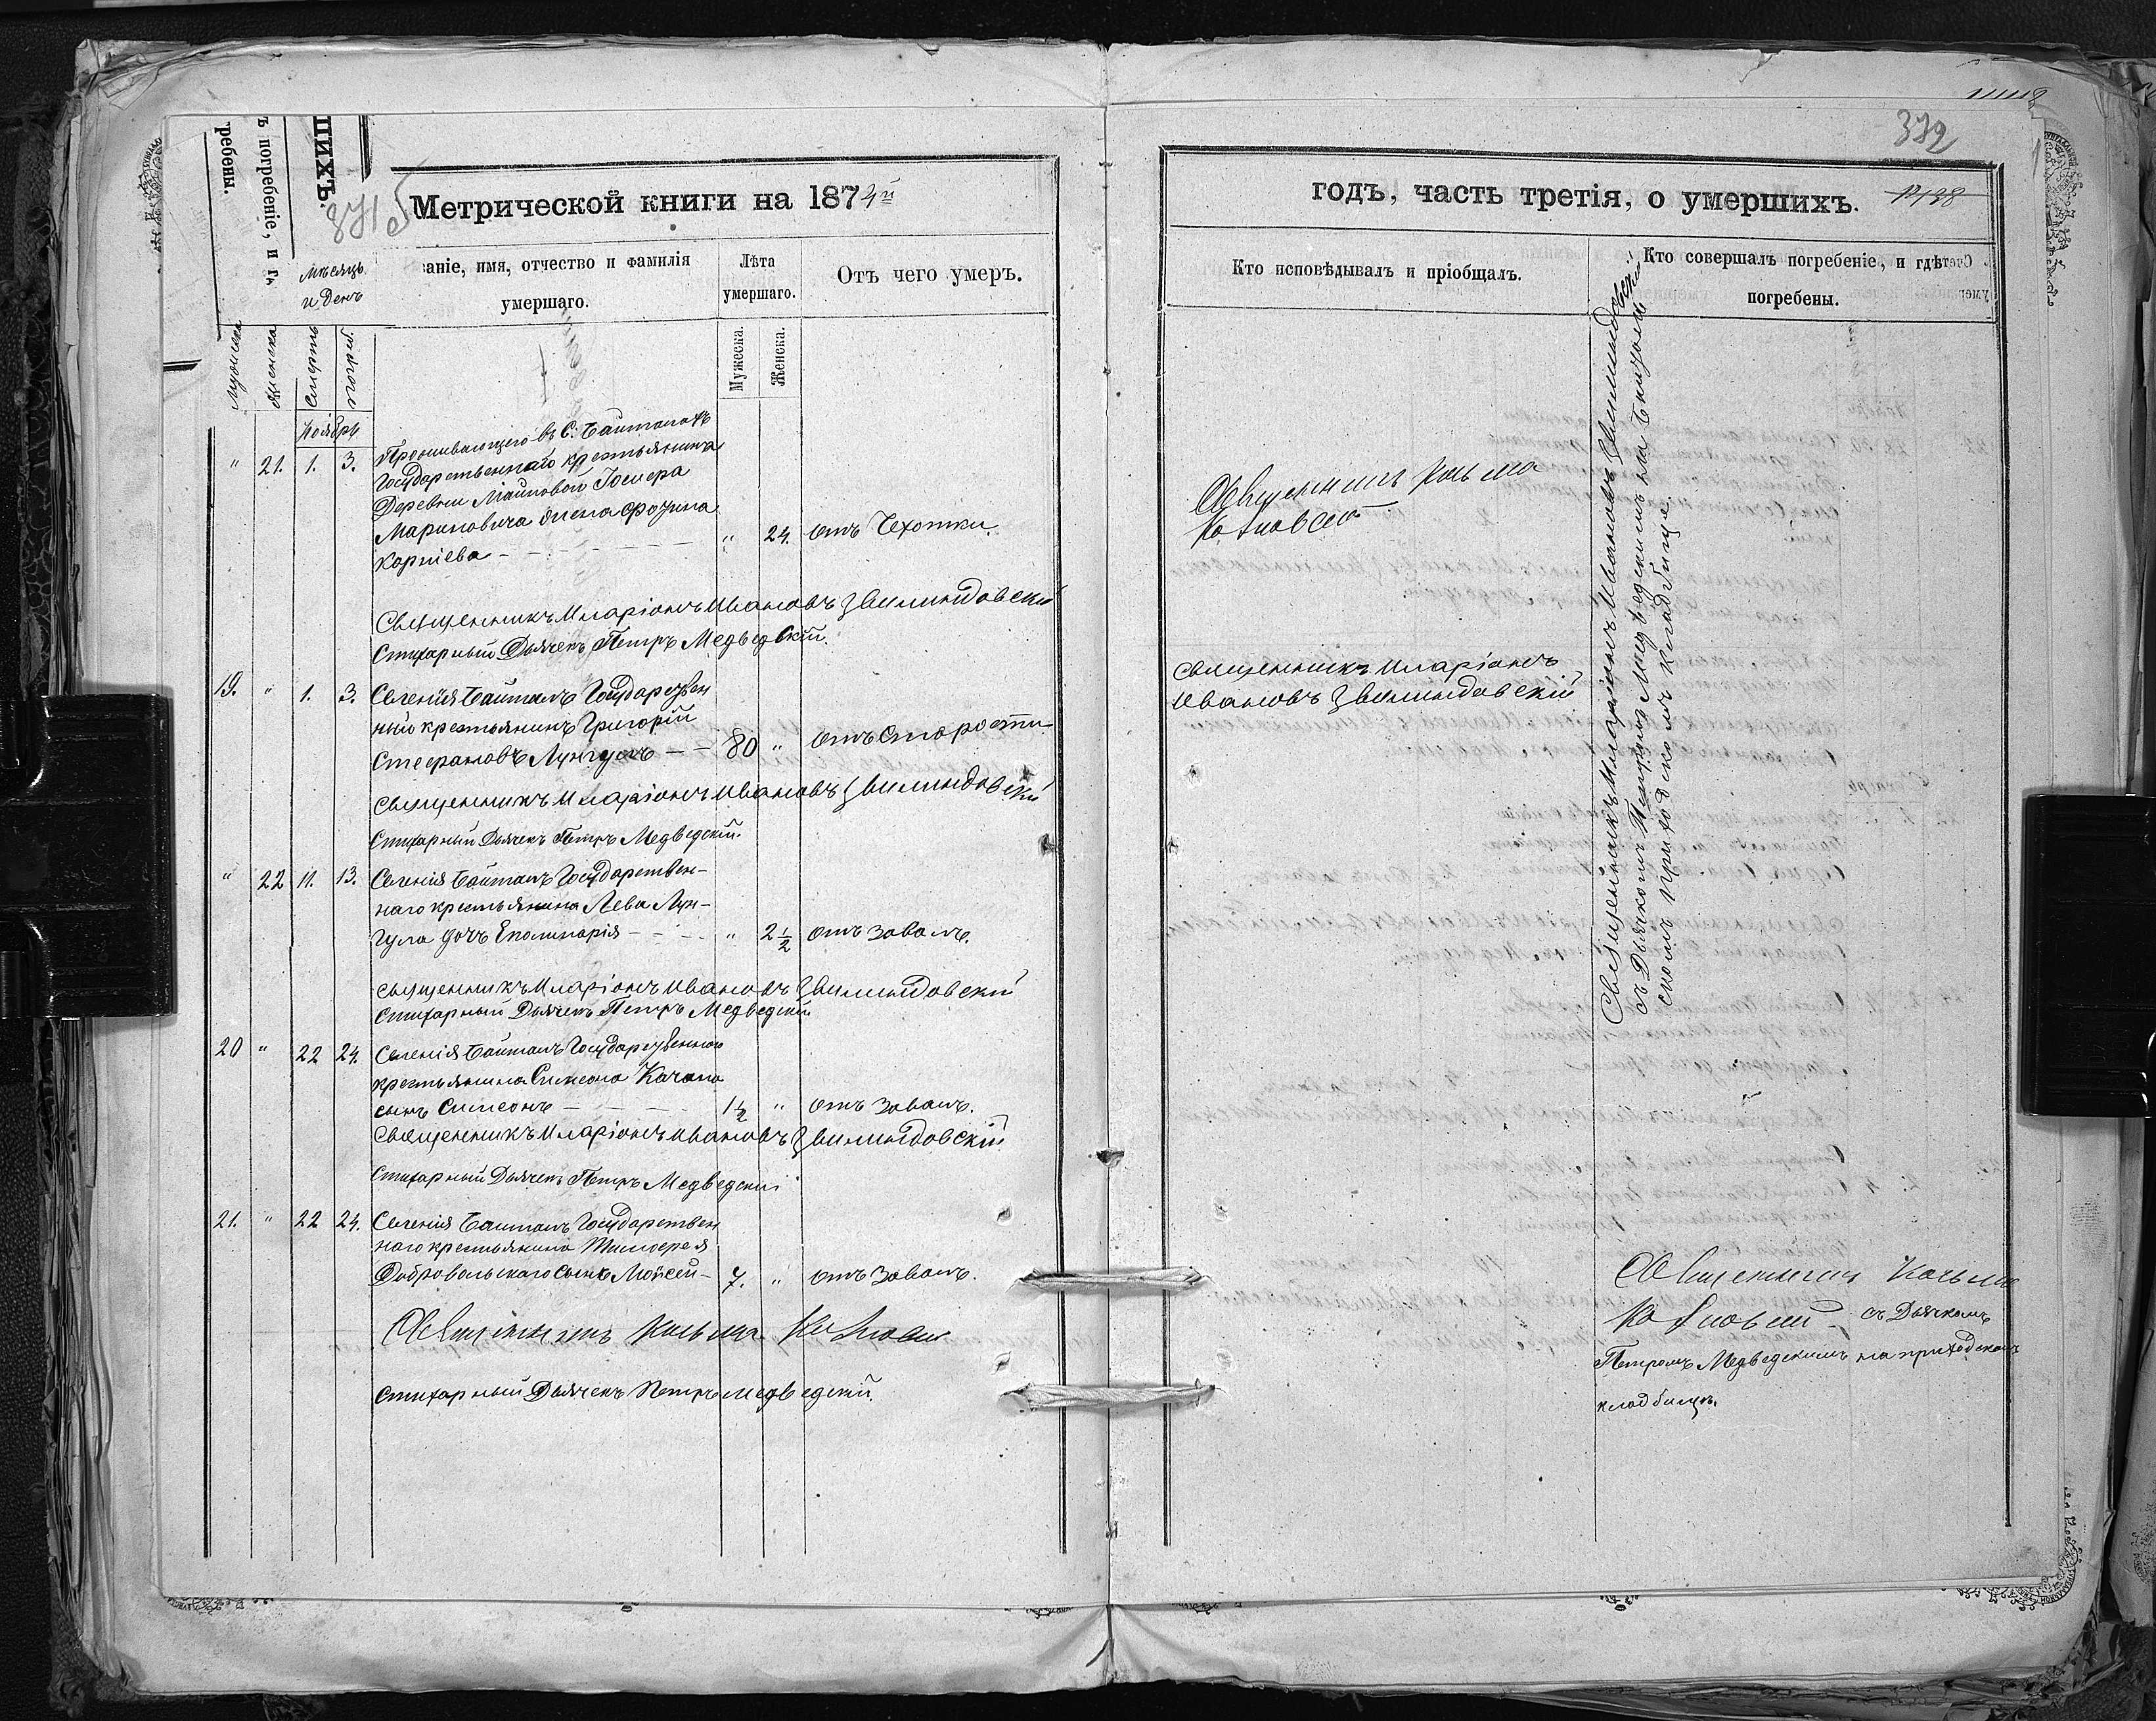 372
шихъ.
ъ погребеніе, и гд
гребены.
8715
Метрической книги на 1874й
годъ, часть третія, о умершихъ.
Мѣсяцъ
и День
званіе, имя, отчество и фамилія
умершаго.
Лѣта
умершаго.
Отъ чего умеръ.
Мужеска
Женска
Смерть
погреб.
Мужеска.
Женска.
Ноябрь
" 21. 1. 3. Проживающего въ С. Баймаклѣ
Государственнаго крестьянина
Деревни
Мариновича жена Фрозина
Корніева - " 24. отъ Чехотки.
Священникъ Иларіонъ Ивановъ Звилиндовскій
Стихарный Дьячекъ Петръ Медведскій.
19. " 1. 3. Селенія Баймалъ Государствен
ный крестьянинъ Григорій
Стефановъ Лунгулъ - - 80 " отъ Старости.
Священникъ Иларіонъ Ивановъ Звилиндовскій
Стихарный Дьячекъ Петръ Медведскій.
" 22 11. 13. Селенія Баймалъ Государствен-
наго крестьянина Лева Лун-
гула дочь Еполинарія - " 2 1/2 отъ Завалъ.
Священникъ Иларіонъ Ивановъ Звилиндовскій
Стихарный Дьячекъ Петръ Медведскій
20 " 22 24. Селенія Баймалъ Государственнаго
крестьянина Симеона Качана
сынъ Симеонъ - 1 1/2 " отъ Завалъ.
Священникъ Иларіонъ Ивановъ Звилиндовскій
Стихарный Дьячекъ Петръ Медведскій
21. " 22 24. Селенія Баймалъ Государствен
наго крестьянина Тимофея
Добровольскаго Сынъ Мойсей - 7. " отъ Завалъ.
Священникъ Козьма
Стихарный Дьячекъ Петръ Медведскій.
Кто исповѣдывалъ и пріобщалъ.
Кто совершалъ погребеніе, и гдѣ
погребены.
Священникъ Козьма
Священникъ Иларіонъ
Ивановъ Звилиндовскій
Священникъ Иларіонъ Ивановъ Звилиндовскій
съ Дьячкомъ Петромъ Медведскимъ на
скомъ приходскомъ кладбище.
Священникъ Козьма
съ Дьячкомъ
Петромъ Медведскимъ на приходскомъ
кладбищѣ.